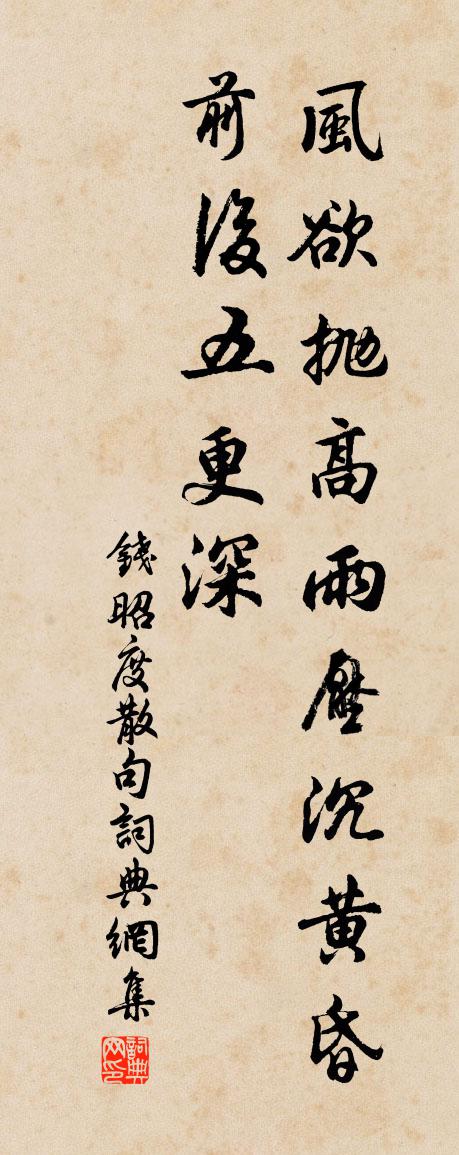 風欲拋高雨壓沉黃昏
前後五更深
錢昭度散句詞典網集
詞典网印